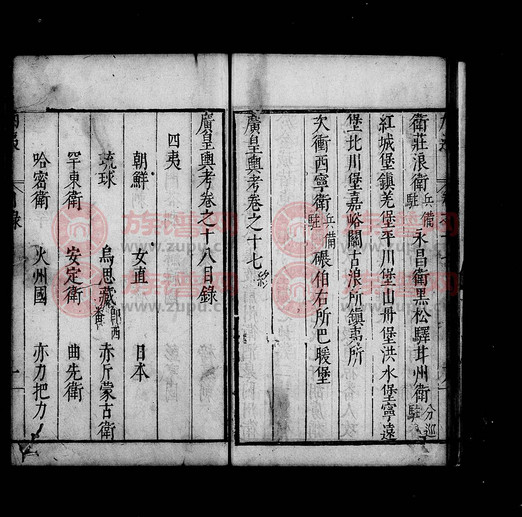 衛莊浪衛兵備駐永昌衛黑松驛甘州衛分巡駐
紅城堡鎮羌堡平川堡山丹堡洪水堡寧遠
堡北川堡嘉峪關古浪所鎮夷所
次衝西寧衛兵備駐碾伯右所巴暖堡
廣皇輿考卷之十七終
廣皇輿考卷之十八目錄
四夷
朝鮮 女直 日本
琉球 烏思藏即西番 赤斤蒙古衛
罕東衛 安定衛 曲先衛
哈密衛 火州國 亦力把力
族譜网
www.zupu.cn